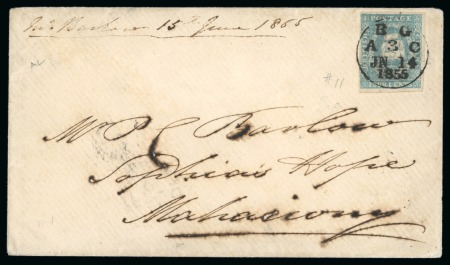 15th June 1855
#11
POSTAGE
B G
A 3 C
JN 14
1855
Mr P C Barlow
Sophia's Hope
Mahaicony